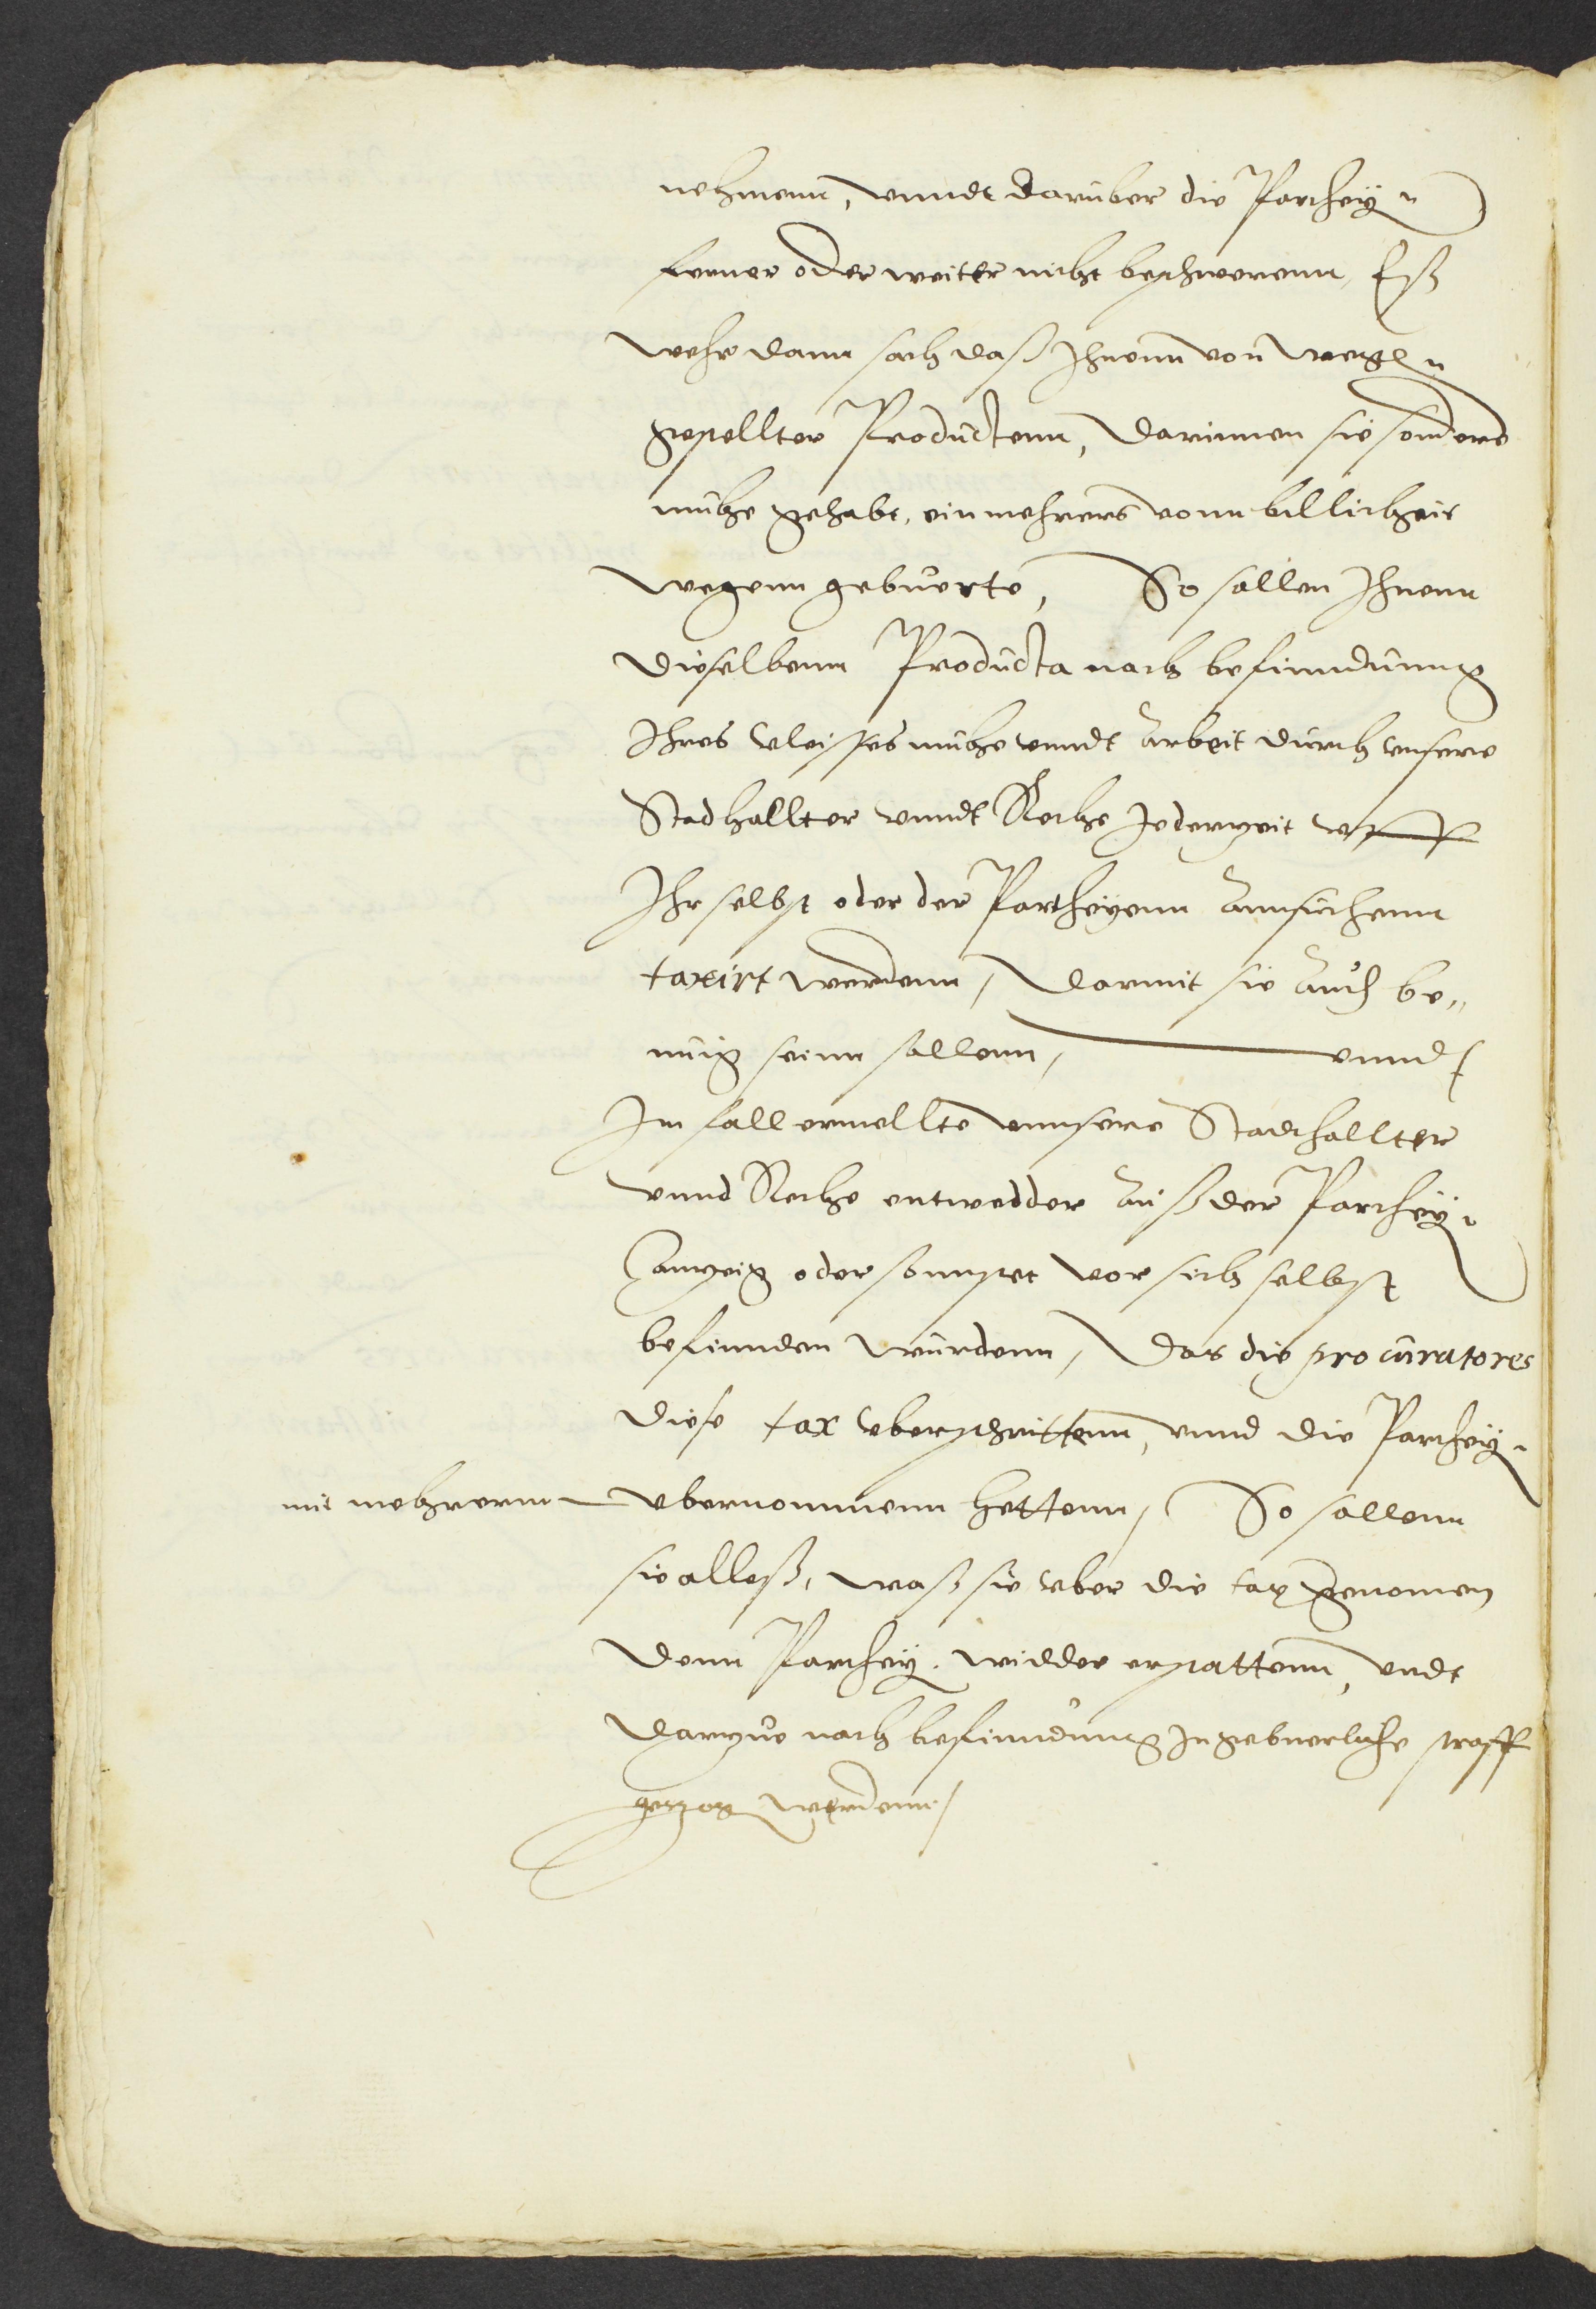 nehmenn, vnndt darüber die Parthey
ferner oder weiter nicht beschwerenn, Eß
wehr dann sach daß Ihnenn von wegen
gestellter Productenn, darinnen sie sonders
mühe gehabt, ein mehrers vonn billicheit
wegenn gebuerte, So sollen Ihnenn
dieselbenn Producta nach befinndunng
Ihres vleisses mühe vnndt Arbeit durch vnsere
Stadhallter vnndt Rethe Jederzeit vff
Ihr selbst oder der Partheyenn Annsuchenn
taxirt werdenn, darmit sie Auch be„
nüig seinn sollenn, vnnd
Im fall ermellte vnnsere Stadthallter
vnnd Rethe entwedder Auß der Parthey
anzeig oder sonnstet vor sich selbst
befinnden würdenn, das die procuratores
diese tax vberschrittenn, vnnd die Parthey
mit mehrerm vbernommenn hettenn, So sollenn
sie alleß, waß sie vber die tax genomen
denn Parthey widder erstattenn, vndt
darzue nach befinndung In gebuerliche straff
gezog werdenn,